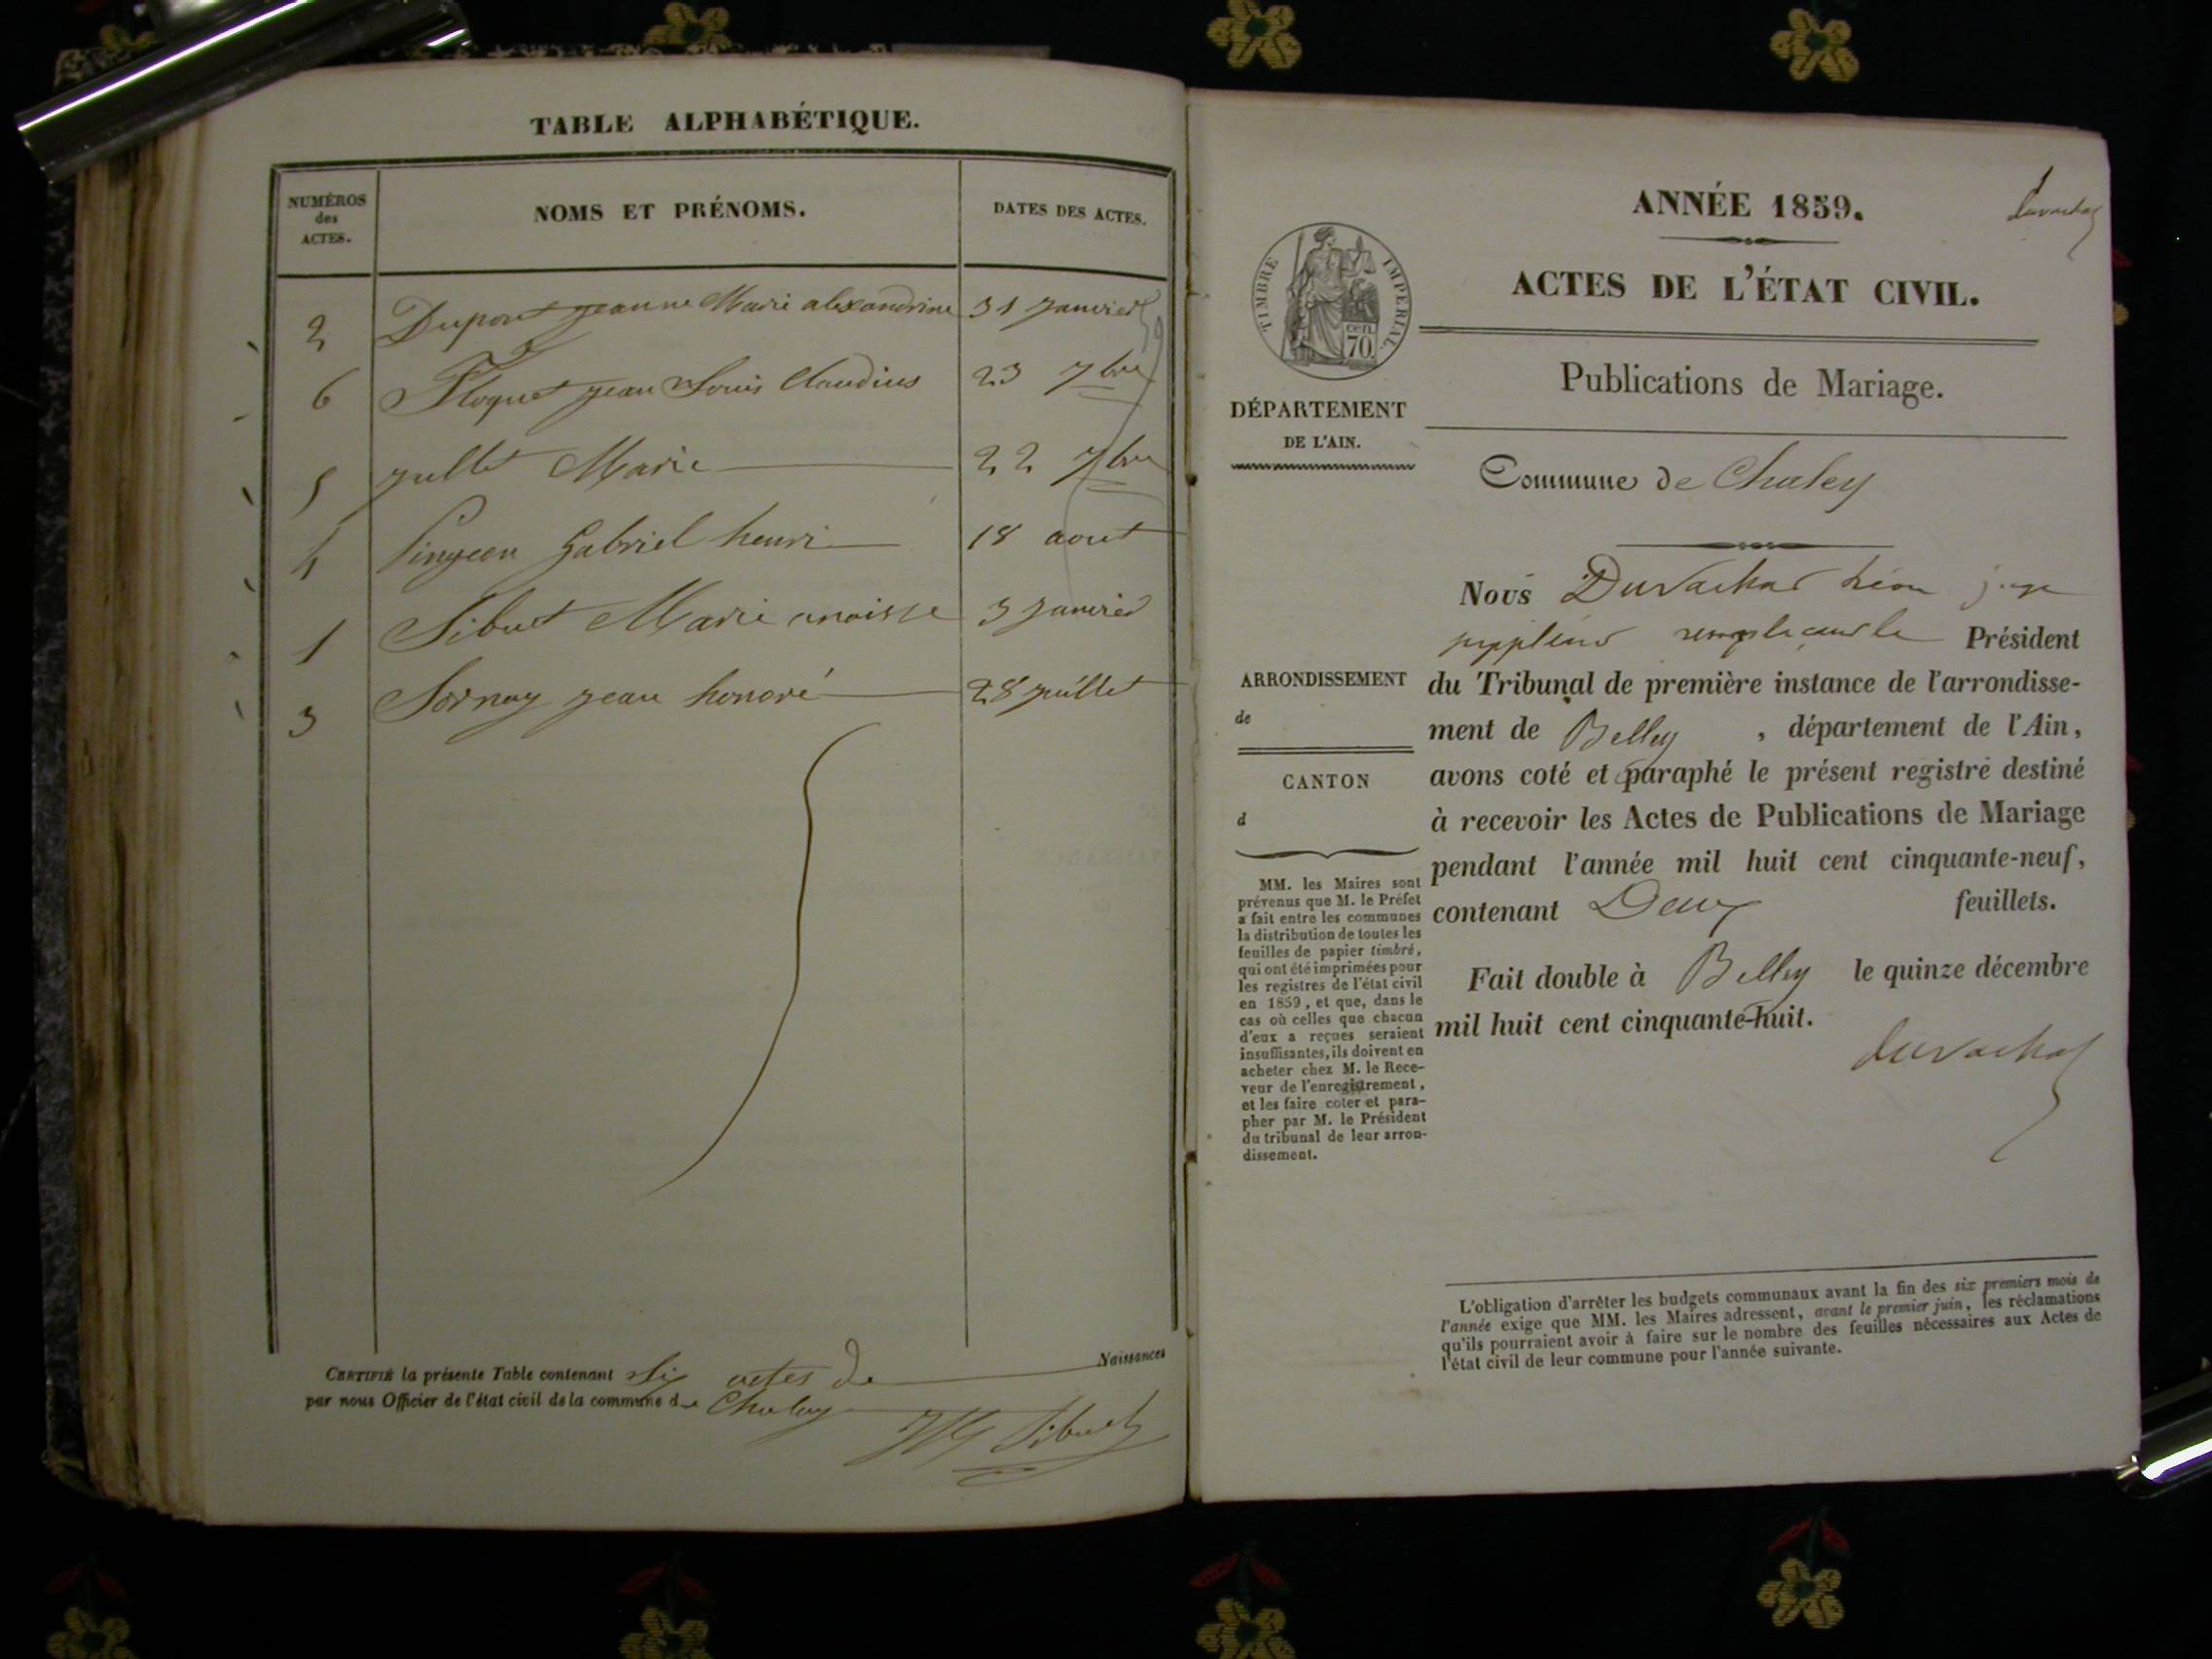 TABLE ALPHABÉTIQUE.
NUMÉROS
des
ACTES.
NOMS ET PRÉNOMS.
DATES DES ACTES.
2 Dupont jeanne Marie alexandrine 31 janvier
6 Floquet jean Louis Claudius 23 7bre
5 jullet Marie 22 7bre
4 Pingeon Gabriel henri 18 aout
1 Sibuet Marie anaisse 3 janvier
3 Sornay jean honoré 28 juillet
CERTIFIÉ la présente Table contenant Six actes de Naissances
par nous Officier de l'état civil de la commune de Chaley
Sibuet
Duvachat
ANNÉE 1859.
ACTES DE L'ÉTAT CIVIL.
TIMBRE IMPERIAL
cen.
70
Publications de Mariage.
DÉPARTEMENT
DE L'AIN.
Commune de Chaley
Nous Duvachat Léon juge
suppléant remplaçant le Président
du Tribunal de première instance de l'arrondisse-
ment de Belley, département de l'Ain,
avons coté et paraphé le présent registre destiné
à recevoir les Actes de Publications de Mariage
pendant l'année mil huit cent cinquante-neuf,
contenant Deux feuillets.
Fait double à Belley le quinze décembre
mil huit cent cinquante-huit.
Duvachat
ARRONDISSEMENT
de
CANTON
d
MM. les Maires sont
prévenus que M. le Préfet
a fait entre les communes
la distribution de toutes les
feuilles de papier timbré,
qui ont été imprimées pour
les registres de l'état civil
en 1859, et que, dans le
cas où celles que chacun
d'eux a reçues seraient
insuffisantes, ils doivent en
acheter chez M. le Rece-
veur de l'enregistrement,
et les faire coter et para-
pher par M. le Président
du tribunal de leur arron-
dissement.
L'obligation d'arrêter les budgets communaux avant la fin des six premiers mois de
l'année exige que MM. les Maires adressent, avant le premier juin, les réclamations
qu'ils pourraient avoir à faire sur le nombre des feuilles nécessaires aux Actes de
l'état civil de leur commune pour l'année suivante.